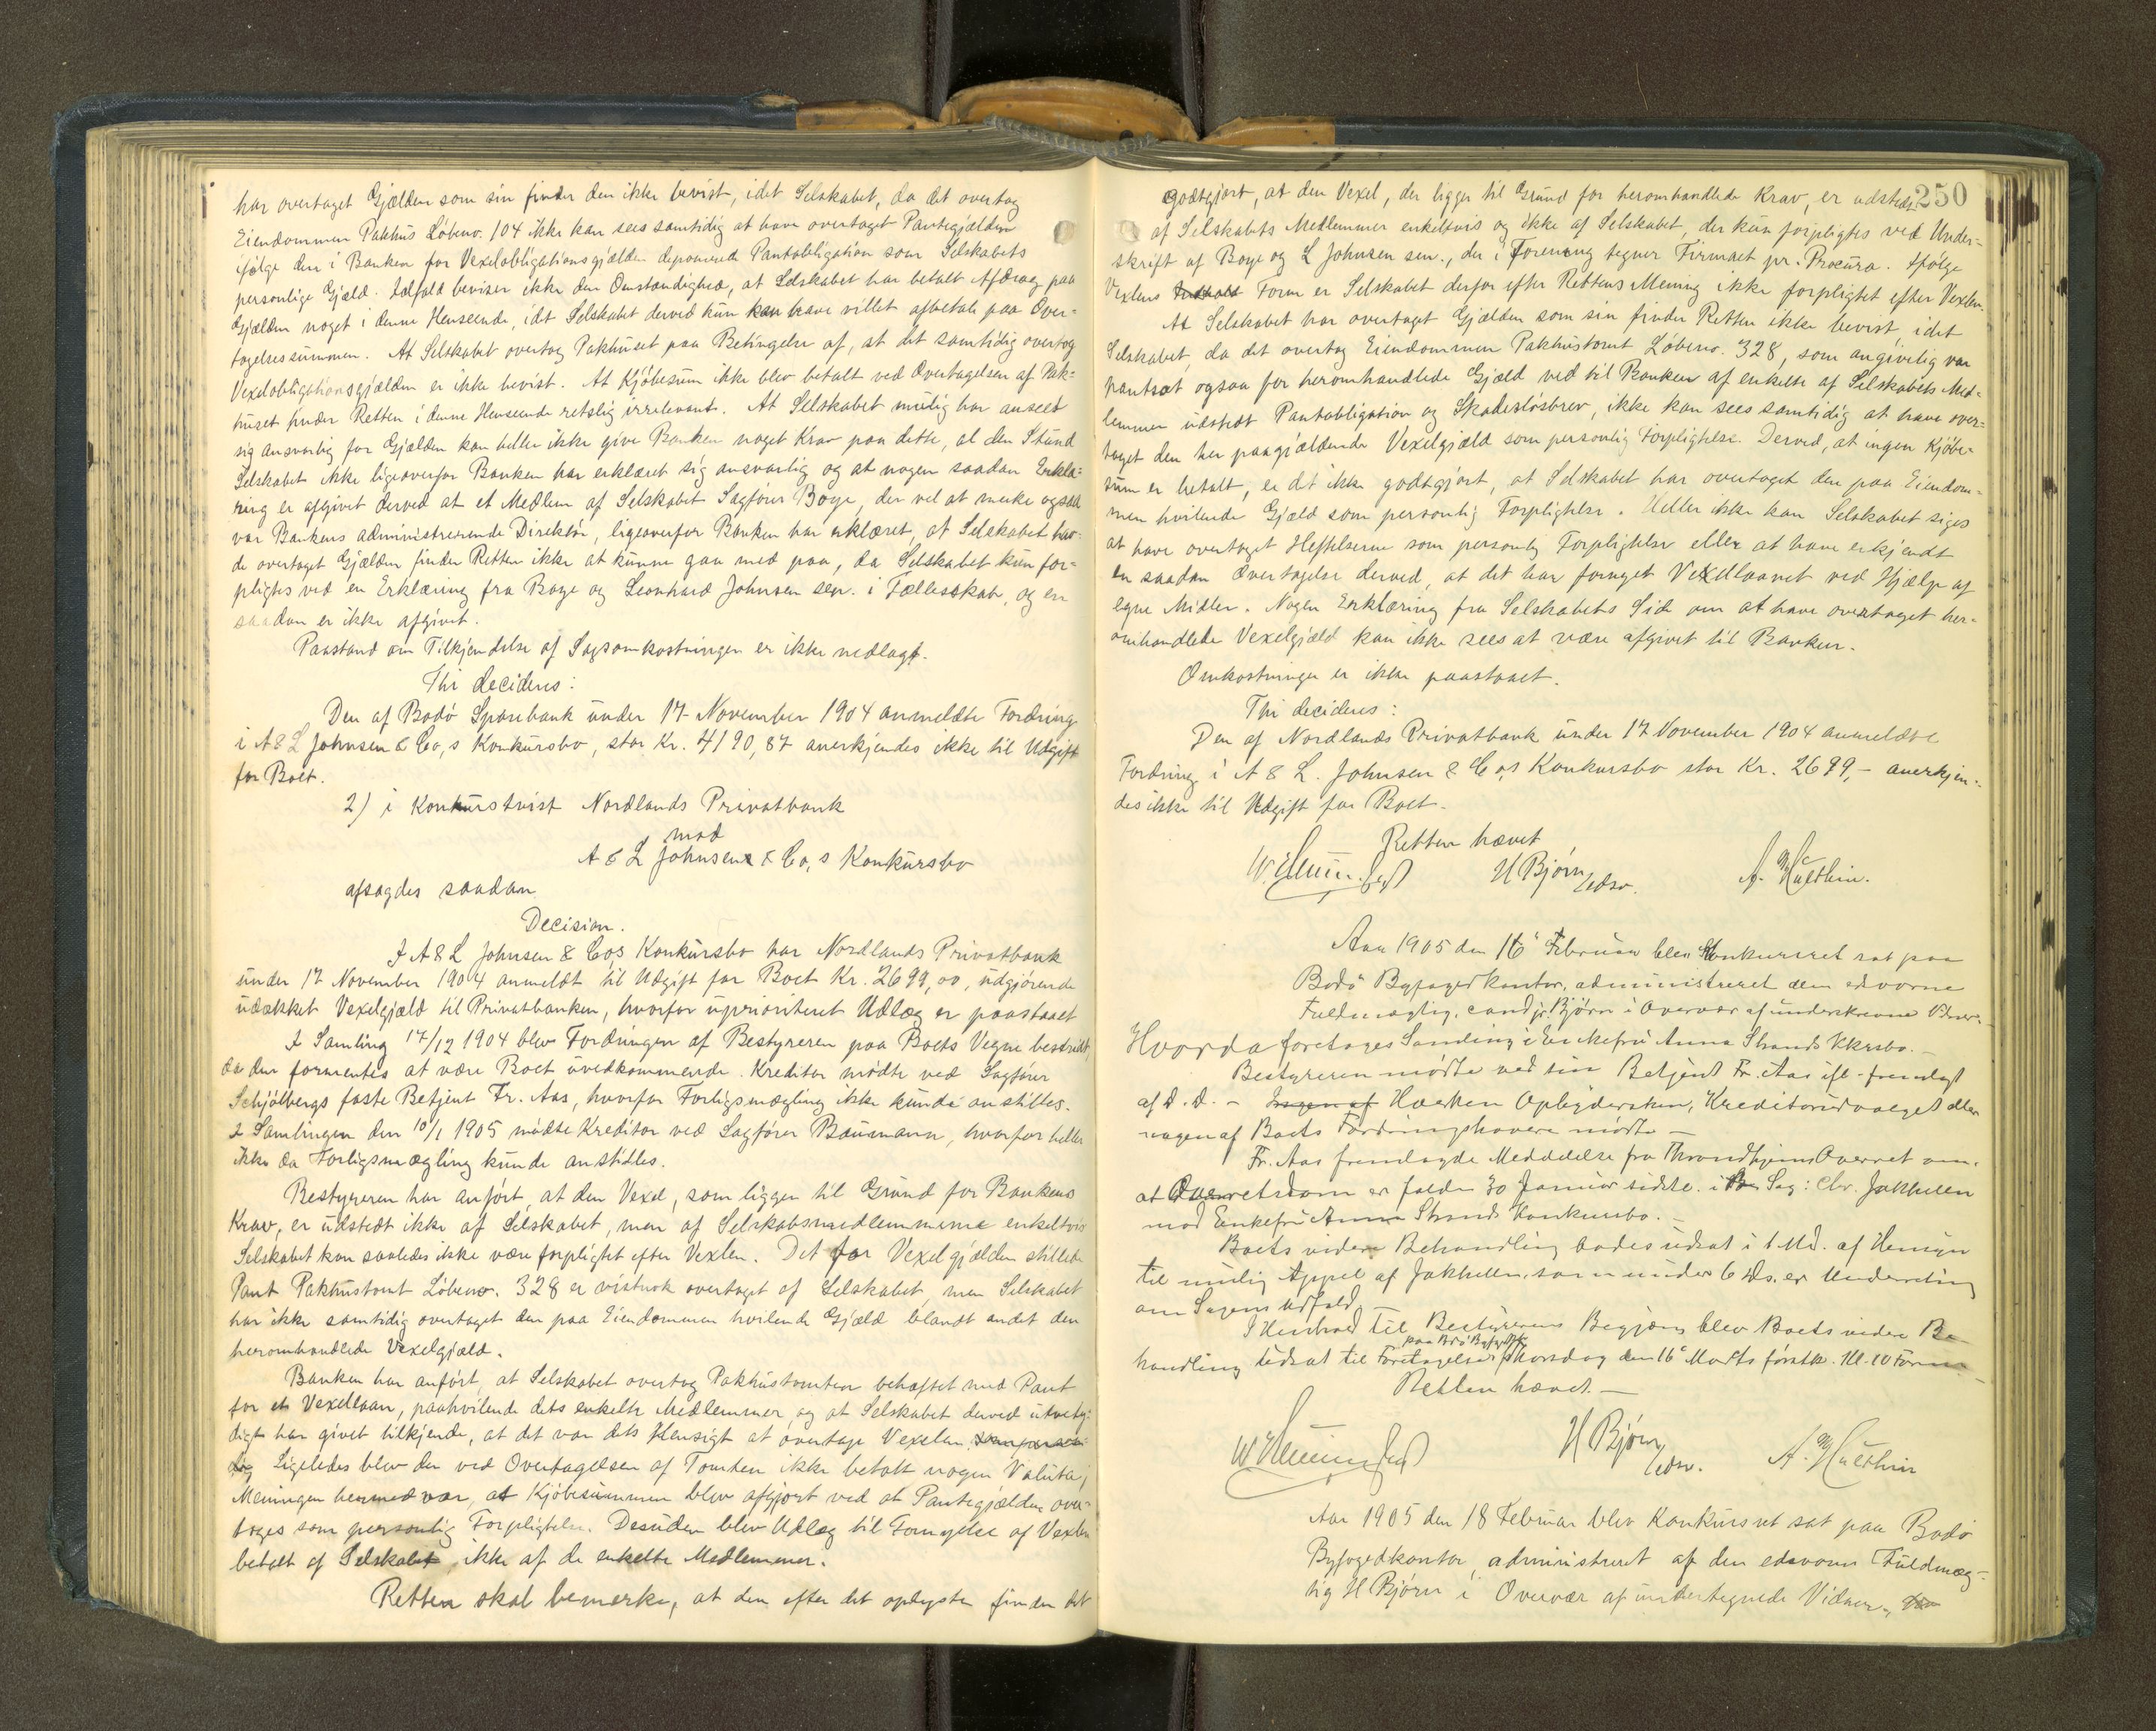 har overtaget Gjælden som sin finder den ikke bevist, idet Selskabet, da det overtog
Eiendommen Pakhus Løbeno. 104 ikke kan sees samtidig at have overtaget Pantegjælden
ifølge den i Banken for Vexelobligationsgjælden deponerede Pantobligation som Selskabets
personlige Gjæld. Ialfald beviser ikke den Omstændighed, at Selskabet har betalt Afdrag paa
Gjælden noget i denne Henseende, idet Selskabet derved kun kan have villet afbetale paa Over-
tagelsessummen. At Selskabet overtog Pakhuset paa Betingelse af, at det samtidig overtog
Vexelobligationsgjælden er ikke bevist. At Kjøbesum ikke blev betalt ved Overtagelsen af Pak-
huset finder Retten i denne Henseende retslig irrelevant. At Selskabet mulig har anseet
sig ansvarlig for Gjælden kan heller ikke give Banken noget Krav paa dette, al den Stund
Selskabet ikke ligeoverfor Banken har erklæret sig ansvarlig og at nogen saadan Erklæ-
ring er afgivet derved at et Medlem af Selskabet Sagfører Boye, der vel at merke ogsaa
var Bankens administrerende Direktør, ligeoverfor Banken har erklæret, at Selskabet hav-
de overtaget Gjælden finder Retten ikke at kunne gaa med paa, da Selskabet kun for-
pligtes ved en Erklæring fra Boye og Leonhard Johnsen sen. i Fællesskab, og en
saadan er ikke afgivet.
Paastand om Tilkjendelse af Sagsomkostninger er ikke nedlagt.
Thi decideres:
Den af Bodø Sparebank under 17 November 1904 anmeldte Fordring
i A & L Johnsen & Co,s Konkursbo, stor Kr. 4190,87 anerkjendes ikke til Udgift
for Boet.
2) i Konkurstvist Nordlands Privatbank
mod
A & L Johnsen & Co,s Konkursbo
afsagdes saadan
Decision.
I A & L Johnsen & Cos Konkursbo har Nordlands Privatbank
under 17 November 1904 anmeldt til Udgift for Boet Kr. 2699,00, udgjørende
udækket Vexelgjæld til Privatbanken, hvorfor uprioriteret Udlæg er paastaaet
I Samling 17/12 1904 blev Fordringen af Bestyreren paa Boets Vegne bestridt,
da den formentes at være Boet uvedkommende. Kreditor mødte ved Sagfører
Schjølbergs faste Betjent Fr. Aas, hvorfor Forligsmægling ikke kunde anstilles.
I Samlingen den 10/1 1905 mødte Kreditor ved Sagfører Baumann, hvorfor heller
ikke da Forligsmægling kunde anstilles.
Bestyreren har anført, at den Vexel, som ligger til Grund for Bankens
Krav, er udstedt ikke af Selskabet, men af Selskabsmedlemmerne enkeltvis
Selskabet kan saaledes ikke være forpligtet efter Vexlen. Det for Vexelgjælden stillede
Pant Pakhustomt Løbeno. 328 er vistnok overtaget af Selskabet, men Selskabet
har ikke samtidig overtaget den paa Eiendommen hvilende Gjæld blandt andet den
heromhandlede Vexelgjæld.
Banken har anført, at Selskabet overtog Pakhustomten behæftet med Pant
for et Vexellaan, paahvilende dets enkelte Medlemmer, og at Selskabet derved utvety-
digt har givet tilkjende, at det var dets Hensigt at overtage Vexelen
Ligeledes blev der ved Overtagelsen af Tomten ikke betalt nogen Valuta;
Meningen hermed var, at Kjøbesummen blev afgjort ved at Pantegjælden over-
toges som personlig Forpligtelse. Desuden blev Udlæg til Fornyelse af Vexlen
betalt af Selskabet, ikke af de enkelte Medlemmer.
Retten skal bemerke, at den efter det oplyste finder det
250
godtgjort, at den Vexel, der ligger til Grund for heromhandlede Krav, er udstedt
af Selskabets Medlemmer enkeltvis og ikke af Selskabet, der kun forpligtes ved Under-
skrift af Boye og L Johnsen sen., der i Forening tegner Firmaet pr. Procura. Ifølge
Vexlens Indhold Form er Selskabet derfor efter Rettens Mening ikke forpligtet efter Vexlen.
At Selskabet har overtaget Gjælden som sin finder Retten ikke bevist, idet
Selskabet, da det overtog Eiendommen Pakhustomt Løbeno. 328, som angivelig var
pantsat ogsaa for heromhandlede Gjæld ved til Banken af enkelte af Selskabets Med-
lemmer udstedt Pantobligation og Skadesløsbrev, ikke kan sees samtidig at have over-
taget den her paagjældende Vexelgjæld som personlig Forpligtelse. Derved, at ingen Kjøbe-
sum er betalt, er det ikke godtgjort, at Selskabet har overtaget den paa Eiendom-
men hvilende Gjæld som personlig Forpligtelse. Heller ikke kan Selskabet siges
at have overtaget Heftelserne som personlig Forpligtelse eller at have erkjendt
en saadan Overtagelse derved, at det har fornyet Vexellaanet ved Hjælp af
egne Midler. Nogen Erklæring fra Selskabets Side om at have overtaget her-
omhandlede Vexelgjæld kan ikke sees at være afgivet til Banken.
Omkostninger er ikke paastaaet.
Thi decideres:
Den af Nordlands Privatbank under 17 November 1904 anmeldte
Fordring i A & L. Johnsen & Co,s Konkursbo stor Kr. 2699,- anerkjen-
des ikke til Udgift for Boet.
Retten hævet
H Bjørn
edsv.
Aar 1905 den 16' Februar blev Konkursret sat paa
Bodø Byfogedkontor, administreret af den edsvorne
Fuldmægtig, cand jr. Bjørn i Overvær af underskrevne Vidner.
Hvorda foretoges Samling i Enkefru Anna Strands Kkrsbo.
Bestyreren mødte ved sin Betjent Fr. Aas ifl. fremlagt
af D. D. – Ingen af Hverken Opbydersken, Kreditorudvalget eller
nogen af Boets Fordringshavere mødte –
Fr. Aas fremlagde Meddelelse fra Throndhjems Overret om,
at Overretsdom er falden 30 Januar sidstl. i Sag: Chr. Jakhelln
mod Enkefru Anna Strands Konkursbo.
Boets videre Behandling bades udsat i 1 Md. af Hensyn
til mulig Appel af Jakhelln, som under 6 ds. er Underretning
om Sagens Udfald.
I Henhold til Bestyrerens Begjæring blev Boets videre Be-
handling udsat til Foretagelse Thorsdag den 16' Marts førstk. Kl. 10 Form.
Retten hævet. –
H Bjørn
edsv.
Aar 1905 den 18 Februar blev Konkursret sat paa Bodø
Byfogedkontor, administreret af den edsvorne Fuldmæg-
tig H Bjørn i Overvær af undertegnede Vidner.